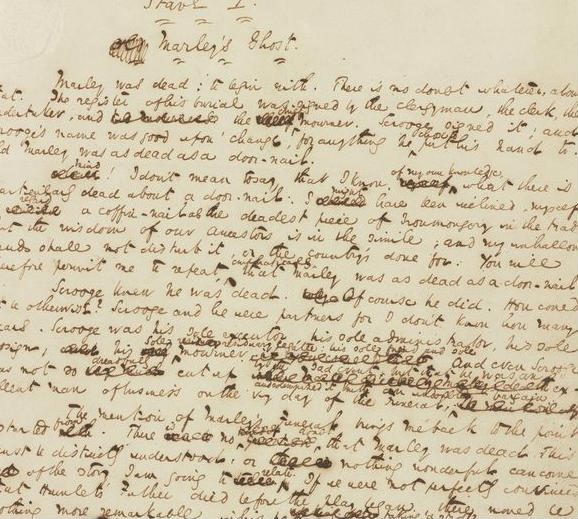 Stave I.
Marley's Ghost.
Marley was dead: to begin with. There is no doubt whatever, abou
at. The register of his burial was signed by the clergyman, the clerk, the
ndertaker, and the mourner. Scrooge signed it; and
rooge's name was good upon 'change, for anything he put his hand to.
ld Marley was as dead as a door-nail.
mind
! I don't mean to say, that I know, of my own knowledge, what there is
articularly dead about a door-nail. I might have been inclined, myself
regard a coffin-nail as the deadest piece of Ironmongery in the trad
ut the wisdom of our ancestors is in the simile; and my unhallow
ands shall not disturb it, or the country's done for. You will
erefore permit me to repeat, emphatically, that Marley was as dead as a door-nail
Scrooge knew he was dead. Of course he did. How could
it be otherwise? Scrooge and he were partners for I don't know how many
ears. Scrooge was his sole executor, his sole administrator, his sole
assign, his sole residuary legatee, his sole friend and sole mourner. And even Scrooge
was not so dreadfully cut up by the sad event, but that he was an
ellent man of business on the very day of the funeral, and
The mention of Marley's funeral brings me back to the point
started from. There is no doubt that Marley was dead. This
must be distinctly understood, or nothing wonderful can come
of the story I am going to relate. If we were not perfectly convinced
that Hamlet's Father died before the Play began, there would be
othing more remarkable